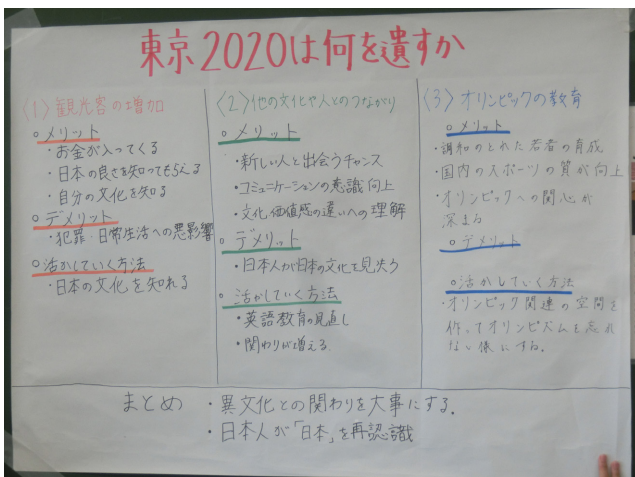 東京2020は何を遺すか
〈1〉観光客の増加
○メリット
・お金が入ってくる
・日本の良さを知ってもらえる
・自分の文化を知る
○デメリット
・犯罪・日常生活への悪影響
○活かしていく方法
・日本の文化を知れる
〈2〉他の文化や人とのつながり
○メリット
・新しい人と出会うチャンス
・コミュニケーションの意識向上
・文化、価値感の違いへの理解
○デメリット
・日本人が日本の文化を見失う
○活かしていく方法
・英語教育の見直し
・関わりが増える
〈3〉オリンピックの教育
○メリット
・調和のとれた若者の育成
・国内のスポーツの質が向上
・オリンピックへの関心が
深まる
○デメリット
○活かしていく方法
・オリンピック関連の空間を
作ってオリンピズムを忘れ
ない様にする。
まとめ ・異文化との関わりを大事にする。
・日本人が「日本」を再認識